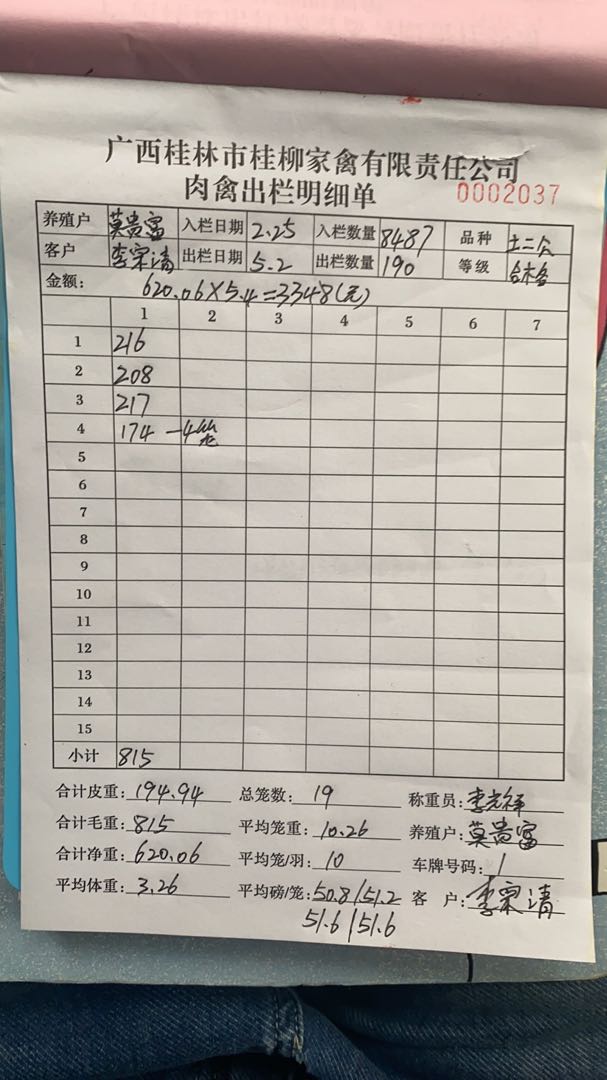 广西桂林市桂柳家禽有限责任公司
肉禽出栏明细单 0002037
养殖户 莫贵富 入栏日期 2.25 入栏数量 8487 品种 土二公
客户 李宗清 出栏日期 5.2 出栏数量 190 等级 合格
金额: 620.06×5.4=3348(元)
1 2 3 4 5 6 7
1 216
2 208
3 217
4 174 —4笼
5
6
7
8
9
10
11
12
13
14
15
小计 815
合计皮重: 194.94 总笼数: 19 称重员: 李光祥
合计毛重: 815 平均笼重: 10.26 养殖户: 莫贵富
合计净重: 620.06 平均笼/羽: 10 车牌号码: 1
平均体重: 3.26 平均磅/笼: 50.8/51.2 客户: 李宗清
51.6/51.6